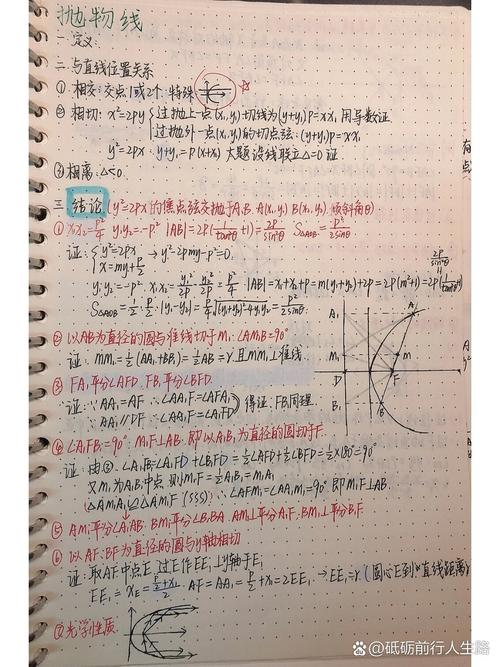 抛物线
一.定义:
二.与直线位置关系
① 相交:交点1或2个.特殊
② 相切: x²=2py { 过抛上一点(x₁,y₁)切线为(y+y₁)p=xx₁ 用导数证
过抛外一点(x₁,y₁)的切点弦:(y+y₁)p=xx₁
y²=2px: y·y₁=p(x+x₁) 大题设线联立△=0证
③ 相离:△<0.
三.结论 (y²=2px的焦点弦交抛于A,B. A(x₁,y₁) B(x₂,y₂) 倾斜角θ)
① x₁x₂=p²/4 y₁y₂=-p² |AB|=2p(1/tan²θ+1)=2p/sin²θ S△AOB=p²/2sinθ
证: { y²=2px
x=my+p/2 → y²-2pmy-p²=0.
y₁y₂=-p² x₁x₂=y₁²/2p·y₂²/2p=p²/4 |AB|=x₁+x₂+p=m(y₁+y₂)+2p=2p(m²+1)=2p(1/tan²θ+1)
2p/sin²θ
S△AOB=1/2·p/2·|y₁-y₂|=p/4√(y₁+y₂)²-4y₁y₂=p²/2sinθ
② 以AB为直径的圆与准线切于M₁ ∠AM₁B=90°
证: MM₁=1/2(AA₁+BB₁)=1/2AB=r 且MM₁⊥准线
③ FA₁平分∠AFD. FB₁平分∠BFD.
证: ∵AA₁=AF ∴∠AA₁F=∠AFA₁
∵AA₁∥DF ∴∠AA₁F=∠A₁FD } 得证.FB₁同理
④ ∠A₁FB₁=90° M₁F⊥AB. 即以A₁B₁为直径的圆切于F
证: 由③. ∠A₁FB₁=∠A₁FD+∠B₁FD=1/2∠AFD+1/2∠BFD=1/2×180°=90°
又M₁为A₁B₁中点 则M₁F=1/2A₁B₁=M₁A₁
△AM₁A₁≌△AM₁F (SSS) ∴∠AFM₁=∠AA₁M₁=90° 即M₁F⊥AB.
⑤ AM₁平分∠A₁AB. BM₁平分∠B₁BA AM₁⊥平分A₁F. BM₁⊥平分B₁F
⑥ 以AF.BF为直径的圆与y轴相切
证: 取AF中点E 过E作EE₁⊥y轴于E₁
EE₁=x_E=(p/2+x₁)/2. AF=AA₁=p/2+x₁=2EE₁ → EE₁=r (圆心E到直线距离)
⑦ 光学性质.
A₁
A
M₁
M
D
F
B₁
B
有
点
百家号@砥砺前行人生路